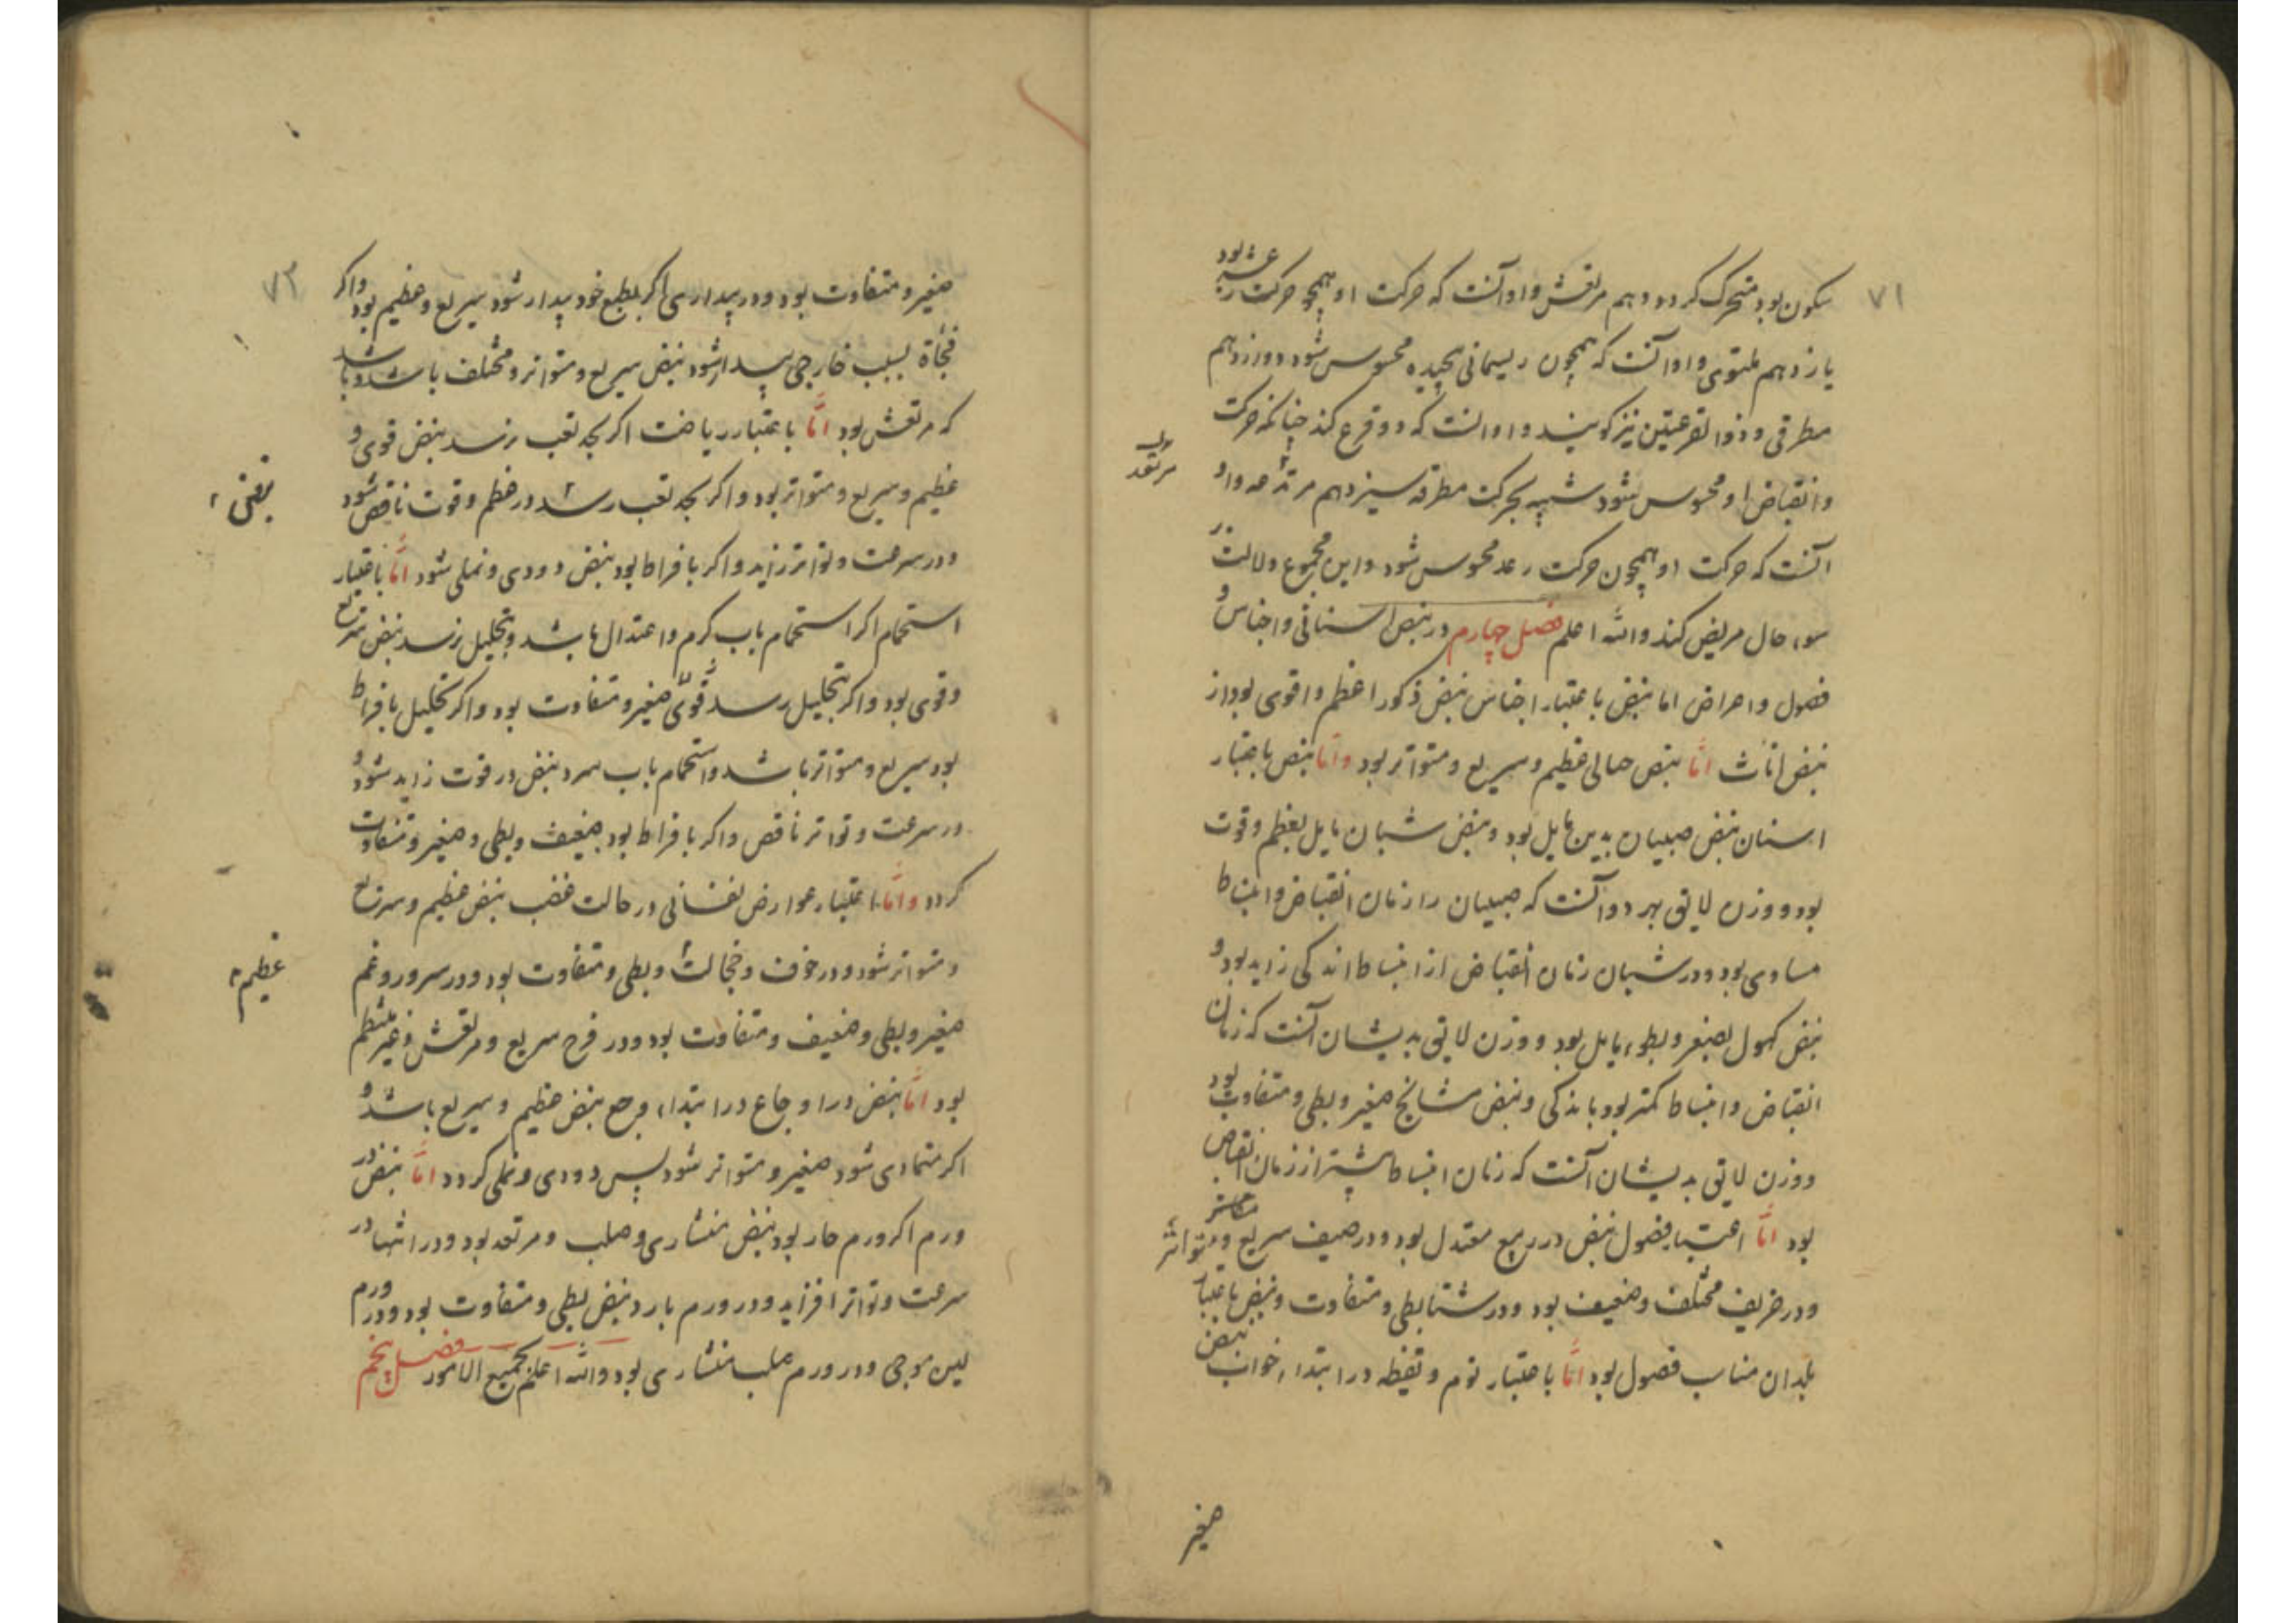 ۷۱
سکون بود متحرک کردد دهم مرتعش و او آنست که حرکت او همچو حرکت رعشه بود
یازدهم ملتوی و او آنست که همچون ریسمانی پیچیده محسوس شود دوازدهم
مطرقی و ذو القرعتین نیز کویند و او انست که دو قرع کند چنانکه حرکت
و انقباض او محسوس نشود شبیه بحرکت مطرقه سیزدهم مرتعد و او
مرتعد
آنست که حرکت او همچون حرکت رعد محسوس شود و این مجموع دلالت بر
سوء حال مریض کند و الله اعلم فصل چهارم در نبض اسنانی و اجناس و
فصول و اعراض اما نبض باعتبار اجناس نبض ذکور اعظم و اقوی بود از
نبض اناث امّا نبض حبالی عظیم و سریع و متواتر بود و امّا نبض باعتبار
اسنان نبض صبیان بدین مایل بود و نبض شبان مایل بعظم و قوت
بود و وزن لایق بهر دو آنست که صبیان را زمان انقباض و انبساط
مساوی بود و در شبان زمان انقباض از انبساط اندکی زاید بود و
نبض کهول بصغر و بطوء مایل بود و وزن لایق بدیشان آنست که زمان
انقباض و انبساط کمتر بود باندکی و نبض مشایخ صغیر و بطی و متفاوت بود
و وزن لایق بدیشان آنست که زمان انبساط بیشتر از زمان انقباض
بود امّا اعتبار فصول نبض در ربیع معتدل بود و در صیف سریع و متواتر
و در خریف مختلف و ضعیف بود و در شتا بطی و متفاوت و نبض باعتبار
بلدان مناسب فصول بود امّا باعتبار نوم و یقظه در ابتداء خواب نبض
صغیر
۷۲
صغیر و متفاوت بود و در بیداری اکر بطبع خود بیدار شود سریع و عظیم بود و اکر
فجأة بسبب خارجی بیدار شود نبض سریع و متواتر و مختلف باشد و باشد
که مرتعش بود امّا باعتبار ریاضت اکر بحد تعب نرسد نبض قوی و
عظیم و سریع و متواتر بود و اکر بحد تعب رسد در عظم و قوت ناقص شود
نبض
و در سرعت و تواتر زاید و اکر بافراط بود نبض دودی و نملی شود امّا باعتبار
استحمام اکر استحمام بآب کرم و اعتدال باشد و بتحلیل نرسد نبض سریع
و قوی بود و اکر بتحلیل رسد قوی صغیر و متفاوت بود و اکر تحلیل بافراط
بود سریع و متواتر باشد و استحمام بآب سرد نبض در قوت زاید شود و
در سرعت و تواتر ناقص و اکر بافراط بود ضعیف و بطی و صغیر و متفاوت
کردد و امّا باعتبار عوارض نفسانی در حالت غضب نبض عظیم و سریع
و متواتر شود و در خوف و خجالت و بطی و متفاوت بود و در سرور و غم
عظیم
صغیر و بطی و ضعیف و متفاوت بود و در فرح سریع و مرتعش و غیر منتظم
بود امّا نبض در اوجاع در ابتداء وجع نبض عظیم و سریع باشد و
اکر متمادی شود صغیر و متواتر شود پس دودی و نملی کردد امّا نبض در
ورم اکر ورم حار بود نبض منشاری و صلب و مرتعد بود و در انتها در
سرعت و تواتر افزاید و در ورم بارد نبض بطی و متفاوت بود و در ورم
لین موجی و در ورم صلب منشاری بود و الله اعلم بجمیع الامور فصل پنجم